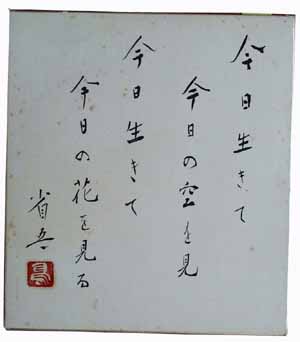 今日生きて
今日の空を見
今日生きて
今日の花を見る
省吾